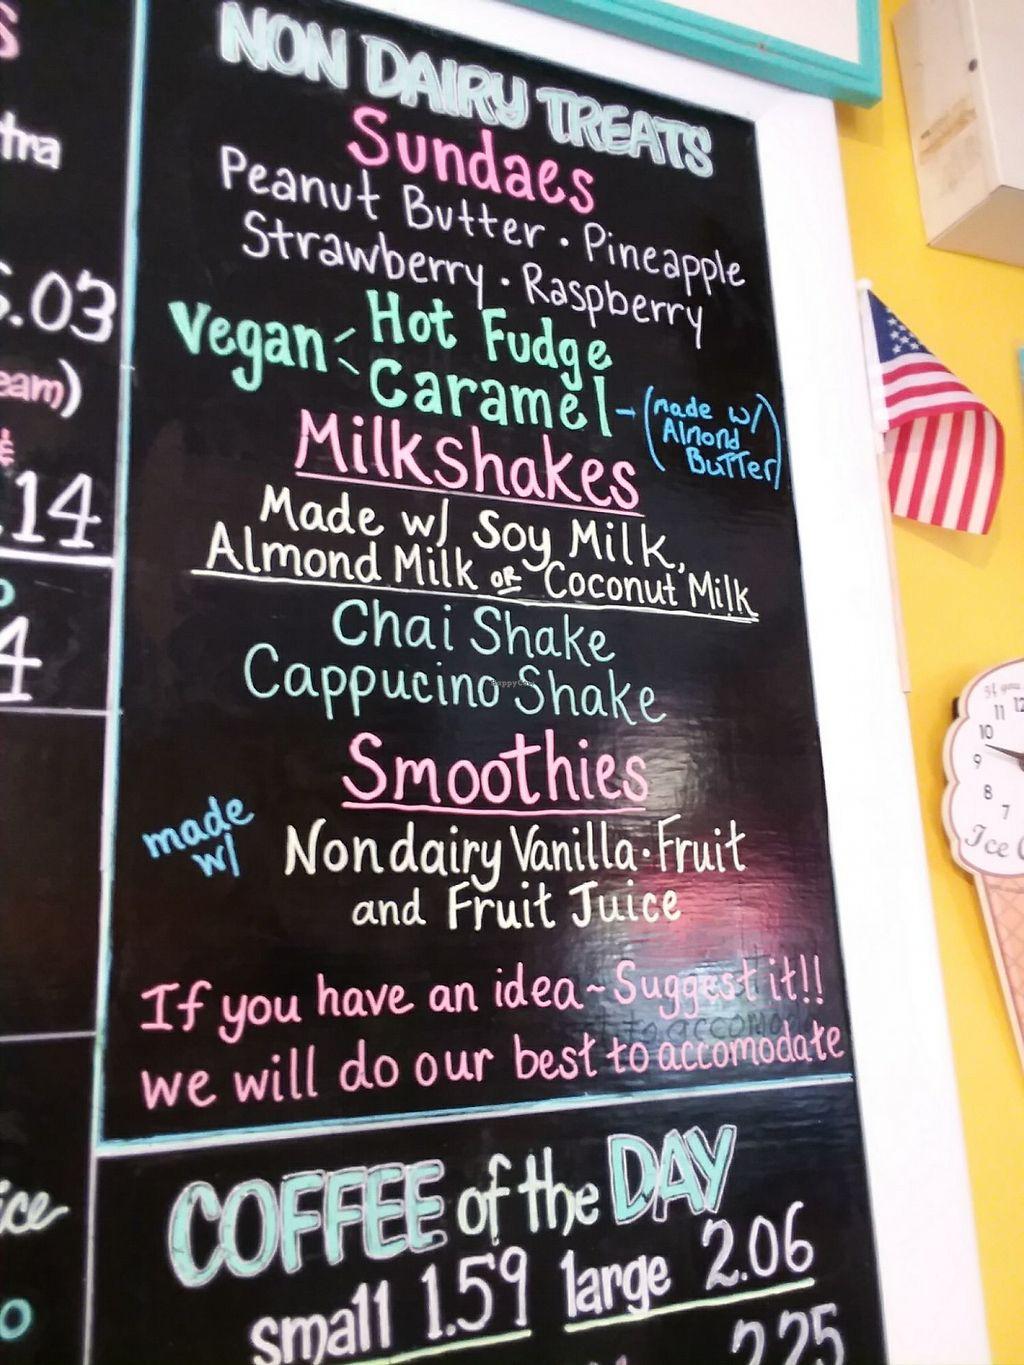 tra
.03
eam)
&
.14
4
ice
NON DAIRY TREATS
Sundaes
Peanut Butter · Pineapple
Strawberry · Raspberry
Vegan < Hot Fudge
Caramel - (made w/
Almond
Butter)
Milkshakes
Made w/ Soy Milk,
Almond Milk or Coconut Milk
Chai Shake
Cappucino Shake
Smoothies
made
w/
Nondairy Vanilla · Fruit
and Fruit Juice
If you have an idea ~ Suggest it!!
we will do our best to accomodate
COFFEE of the DAY
small 1.59 large 2.06
2.25
If you
11 12
10
9
8
7
Ice